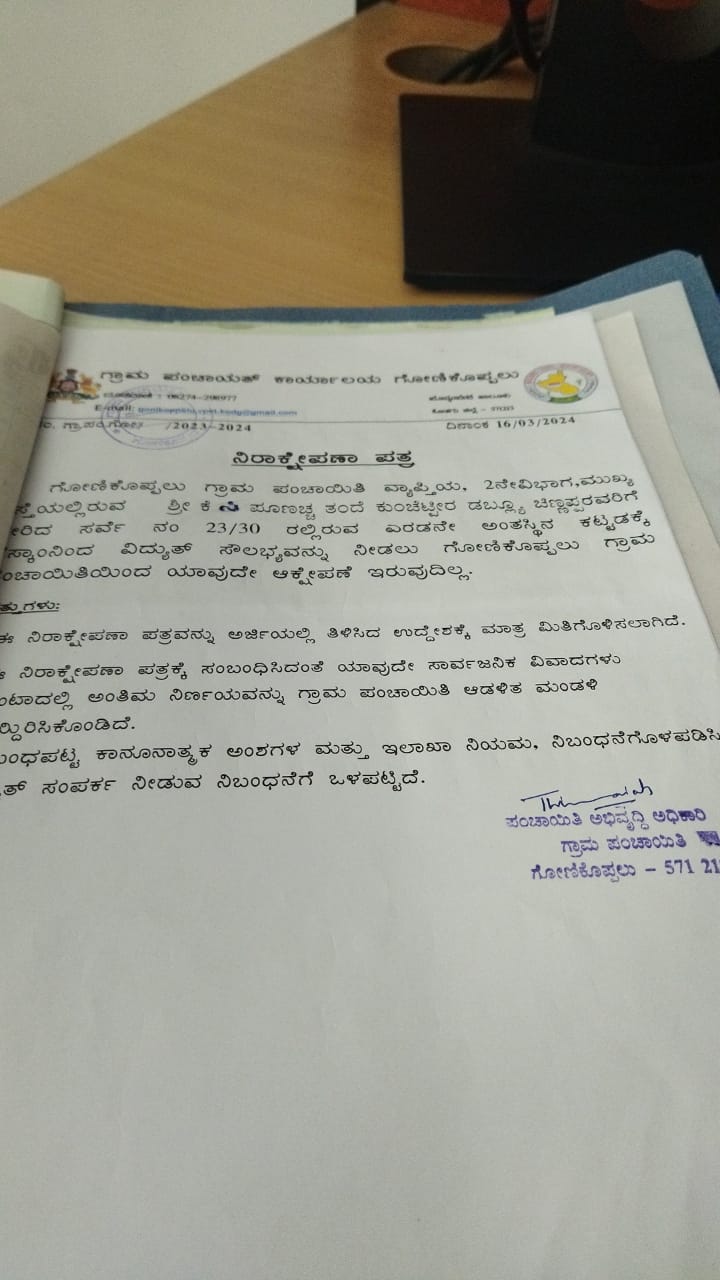 ಗ್ರಾಮ ಪಂಚಾಯತ್ ಕಾರ್ಯಾಲಯ ಗೋಣಿಕೊಪ್ಪಲು
: 08274-298977
E-mail:
/2023-2024
ದಿನಾಂಕ 16/03/2024
ನಿರಾಕ್ಷೇಪಣಾ ಪತ್ರ
ಗೋಣಿಕೊಪ್ಪಲು ಗ್ರಾಮ ಪಂಚಾಯಿತಿ ವ್ಯಾಪ್ತಿಯ, 2ನೇವಿಭಾಗ,ಮುಖ್ಯ
ಸ್ತೆಯಲ್ಲಿರುವ ಶ್ರೀ ಕೆ ಪೂಣಚ್ಚ ತಂದೆ ಕುಂಚೆಟ್ಟೀರ ಡಬ್ಲ್ಯೂ ಚಿಣ್ಣಪ್ಪರವರಿಗೆ
ೇರಿದ ಸರ್ವೆ ನಂ 23/30 ರಲ್ಲಿರುವ ಎರಡನೇ ಅಂತಸ್ಥಿನ ಕಟ್ಟಡಕ್ಕೆ
ಸ್ಕಾಂನಿಂದ ವಿದ್ಯುತ್ ಸೌಲಭ್ಯವನ್ನು ನೀಡಲು ಗೋಣಿಕೊಪ್ಪಲು ಗ್ರಾಮ
ಂಚಾಯಿತಿಯಿಂದ ಯಾವುದೇ ಆಕ್ಷೇಪಣೆ ಇರುವುದಿಲ್ಲ.
ತ್ತುಗಳು:
ಈ ನಿರಾಕ್ಷೇಪಣಾ ಪತ್ರವನ್ನು ಅರ್ಜಿಯಲ್ಲಿ ತಿಳಿಸಿದ ಉದ್ದೇಶಕ್ಕೆ ಮಾತ್ರ ಮಿತಿಗೊಳಿಸಲಾಗಿದೆ.
ಈ ನಿರಾಕ್ಷೇಪಣಾ ಪತ್ರಕ್ಕೆ ಸಂಬಂಧಿಸಿದಂತೆ ಯಾವುದೇ ಸಾರ್ವಜನಿಕ ವಿವಾದಗಳು
ಂಟಾದಲ್ಲಿ ಅಂತಿಮ ನಿರ್ಣಯವನ್ನು ಗ್ರಾಮ ಪಂಚಾಯಿತಿ ಆಡಳಿತ ಮಂಡಳಿ
ಲ್ದಿರಿಸಿಕೊಂಡಿದೆ.
ಬಂಧಪಟ್ಟ ಕಾನೂನಾತ್ಮಕ ಅಂಶಗಳ ಮತ್ತು ಇಲಾಖಾ ನಿಯಮ, ನಿಬಂಧನೆಗೊಳಪಡಿಸಿ
ತ್ ಸಂಪರ್ಕ ನೀಡುವ ನಿಬಂಧನೆಗೆ ಒಳಪಟ್ಟಿದೆ.
ಪಂಚಾಯಿತಿ ಅಭಿವೃದ್ಧಿ ಅಧಿಕಾರಿ
ಗ್ರಾಮ ಪಂಚಾಯಿತಿ
ಗೋಣಿಕೊಪ್ಪಲು - 571 21